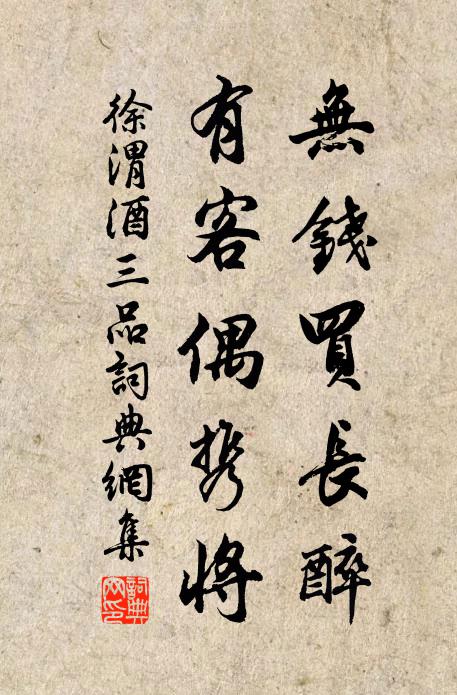 無錢買長醉
有客偶携將
徐渭酒三品詞典網集
詞典网印